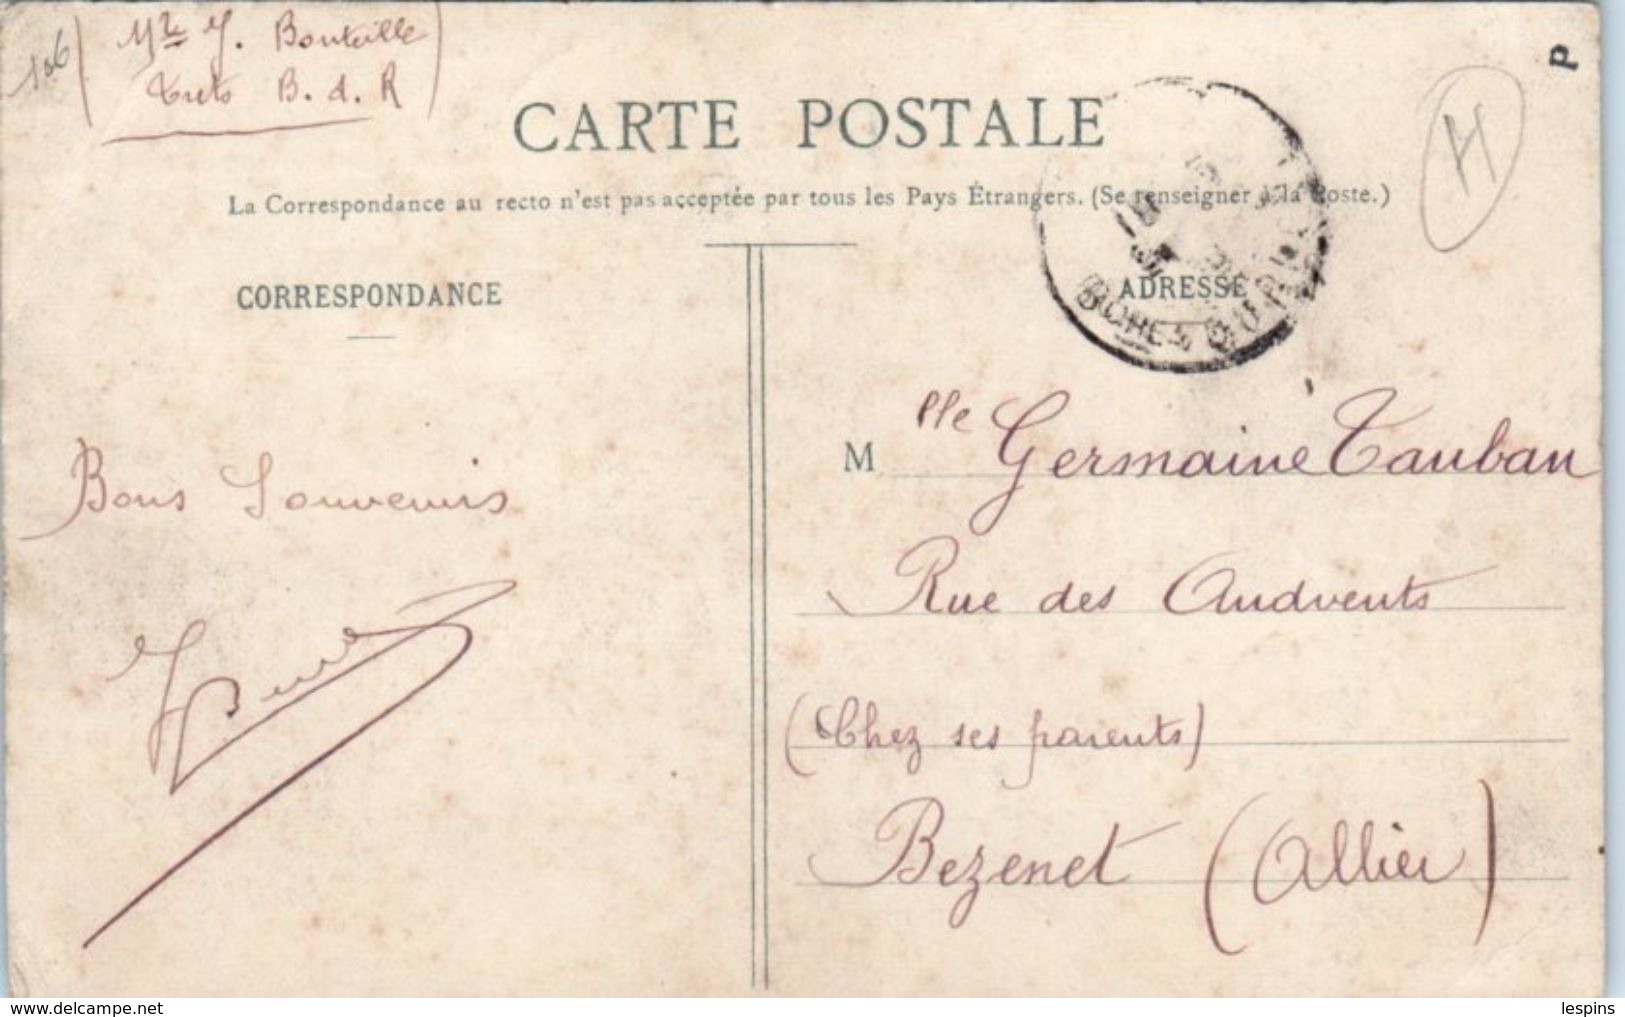 106
Mle Y. Bouteille
Trets B. d. R
P
H
CARTE POSTALE
La Correspondance au recto n'est pas acceptée par tous les Pays Étrangers. (Se renseigner à la Poste.)
CORRESPONDANCE
ADRESSE
BOUCHES DU RHONE
Bons Souvenirs
Mlle Germaine Tauban
Rue des Andvents
(Chez ses parents)
Bezenet (Allier)
www.delcampe.net
lespins